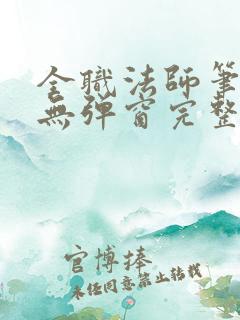 全職法師筆
無彈窗完整
官博捧
未经同意禁止转载